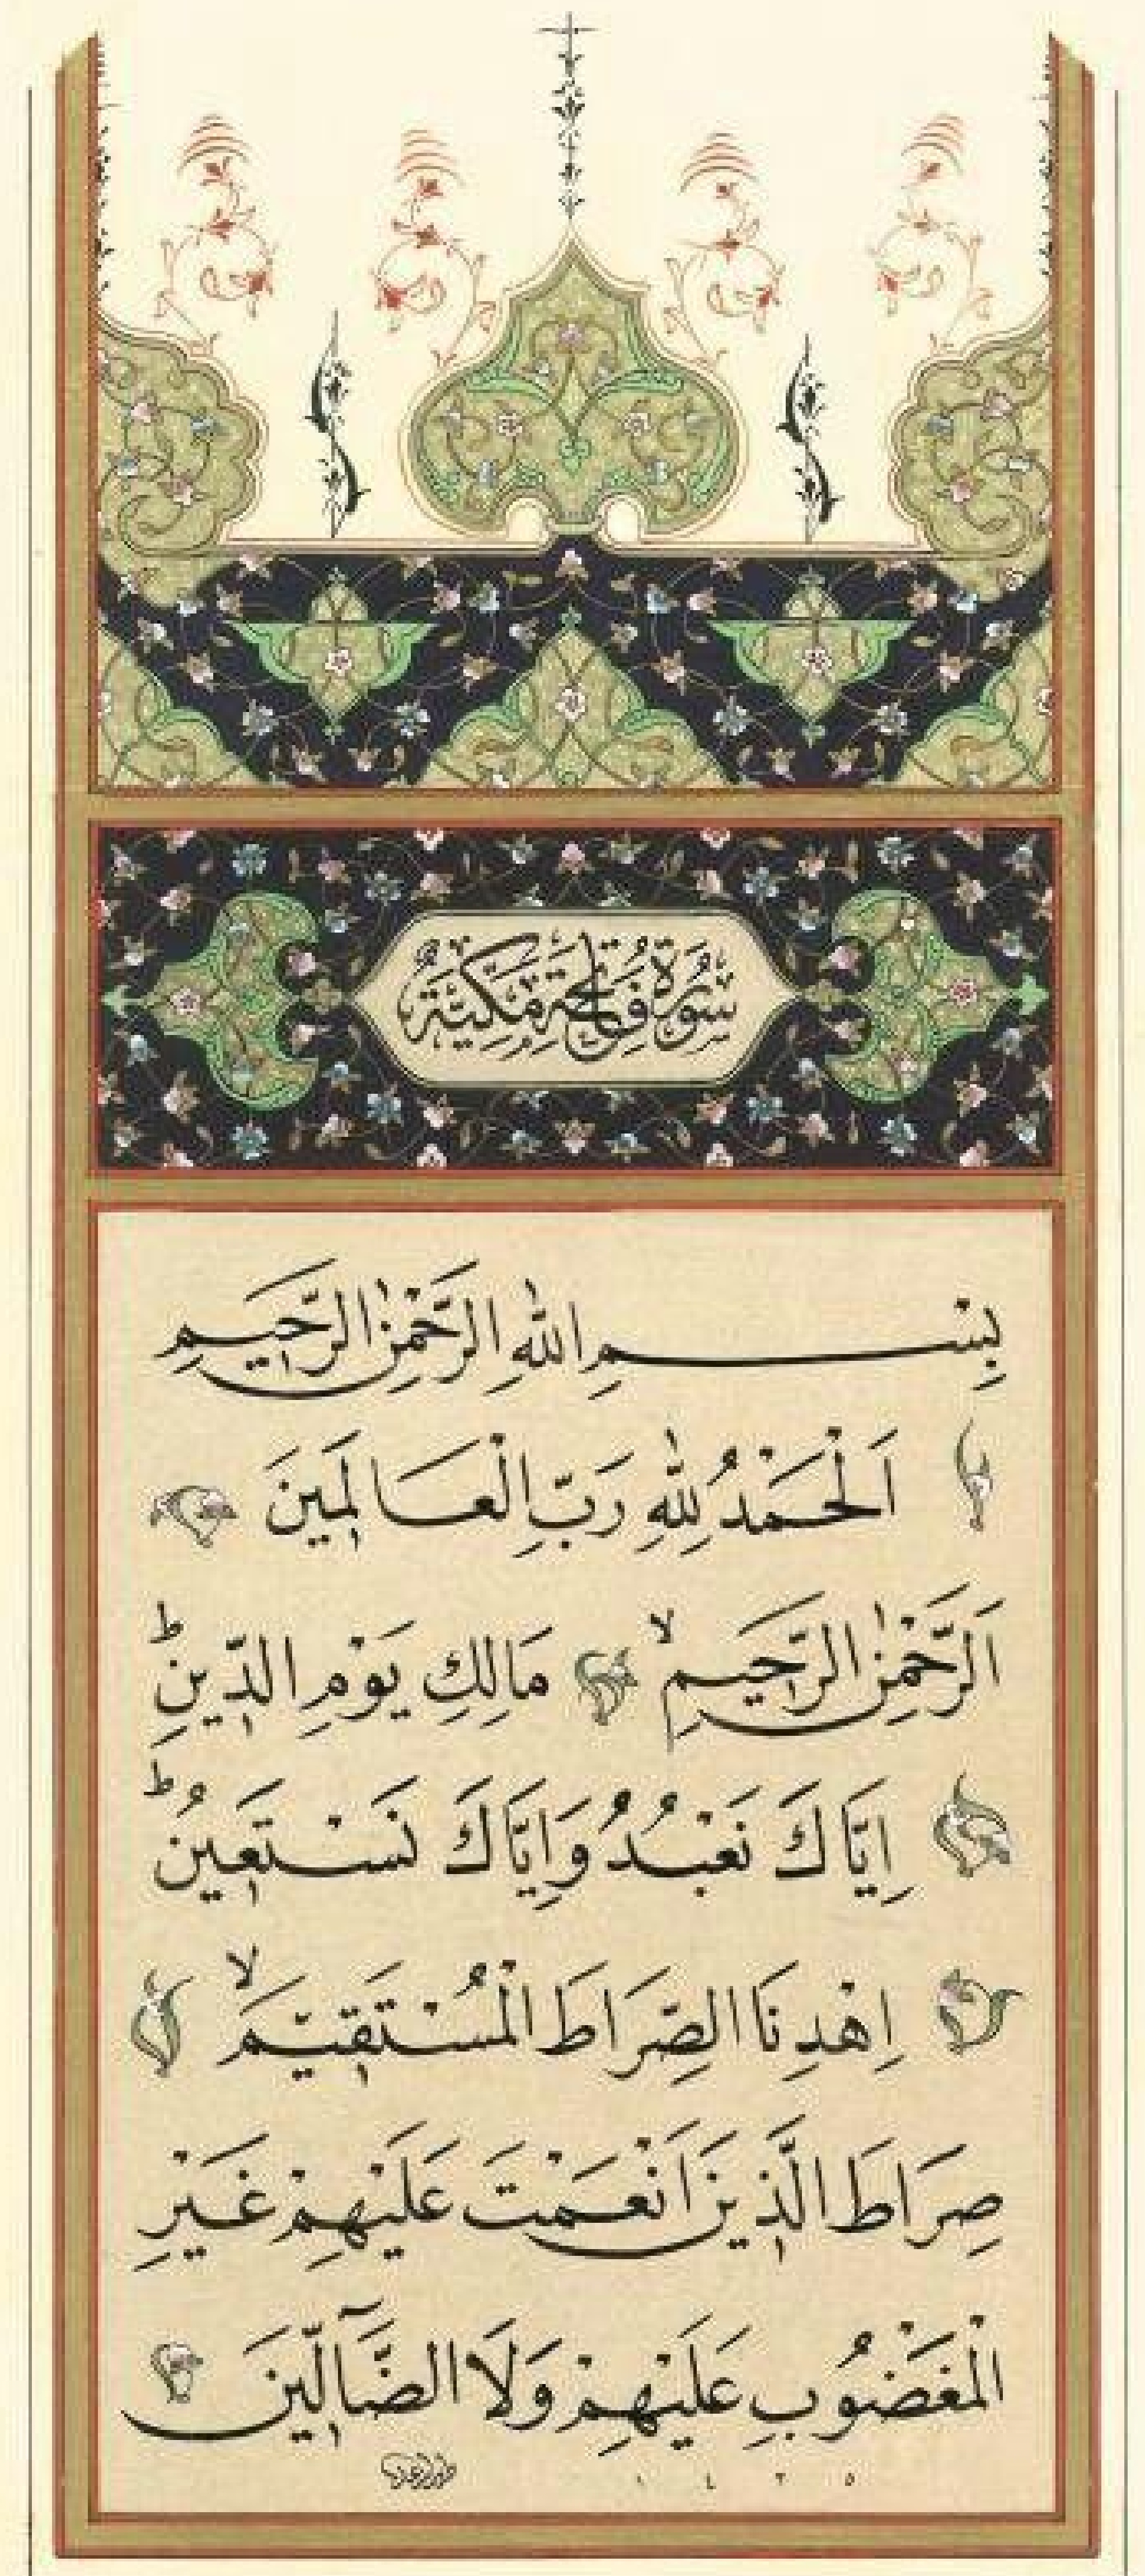 سُورَةُ فَاتِحَةِ مَكِّيَّةٌ
بِسْمِ اللهِ الرَّحْمٰنِ الرَّحِيمِ
اَلْحَمْدُ لِلّٰهِ رَبِّ الْعَالَمِينَ
اَلرَّحْمٰنِ الرَّحِيمِ ۙ مَالِكِ يَوْمِ الدِّينِ ۜؕ
اِيَّاكَ نَعْبُدُ وَاِيَّاكَ نَسْتَعِينُ ؕ
اِهْدِنَا الصِّرَاطَ الْمُسْتَقِيمَ ۙ
صِرَاطَ الَّذِينَ اَنْعَمْتَ عَلَيْهِمْ غَيْرِ
الْمَغْضُوبِ عَلَيْهِمْ وَلَا الضَّآلِّينَ